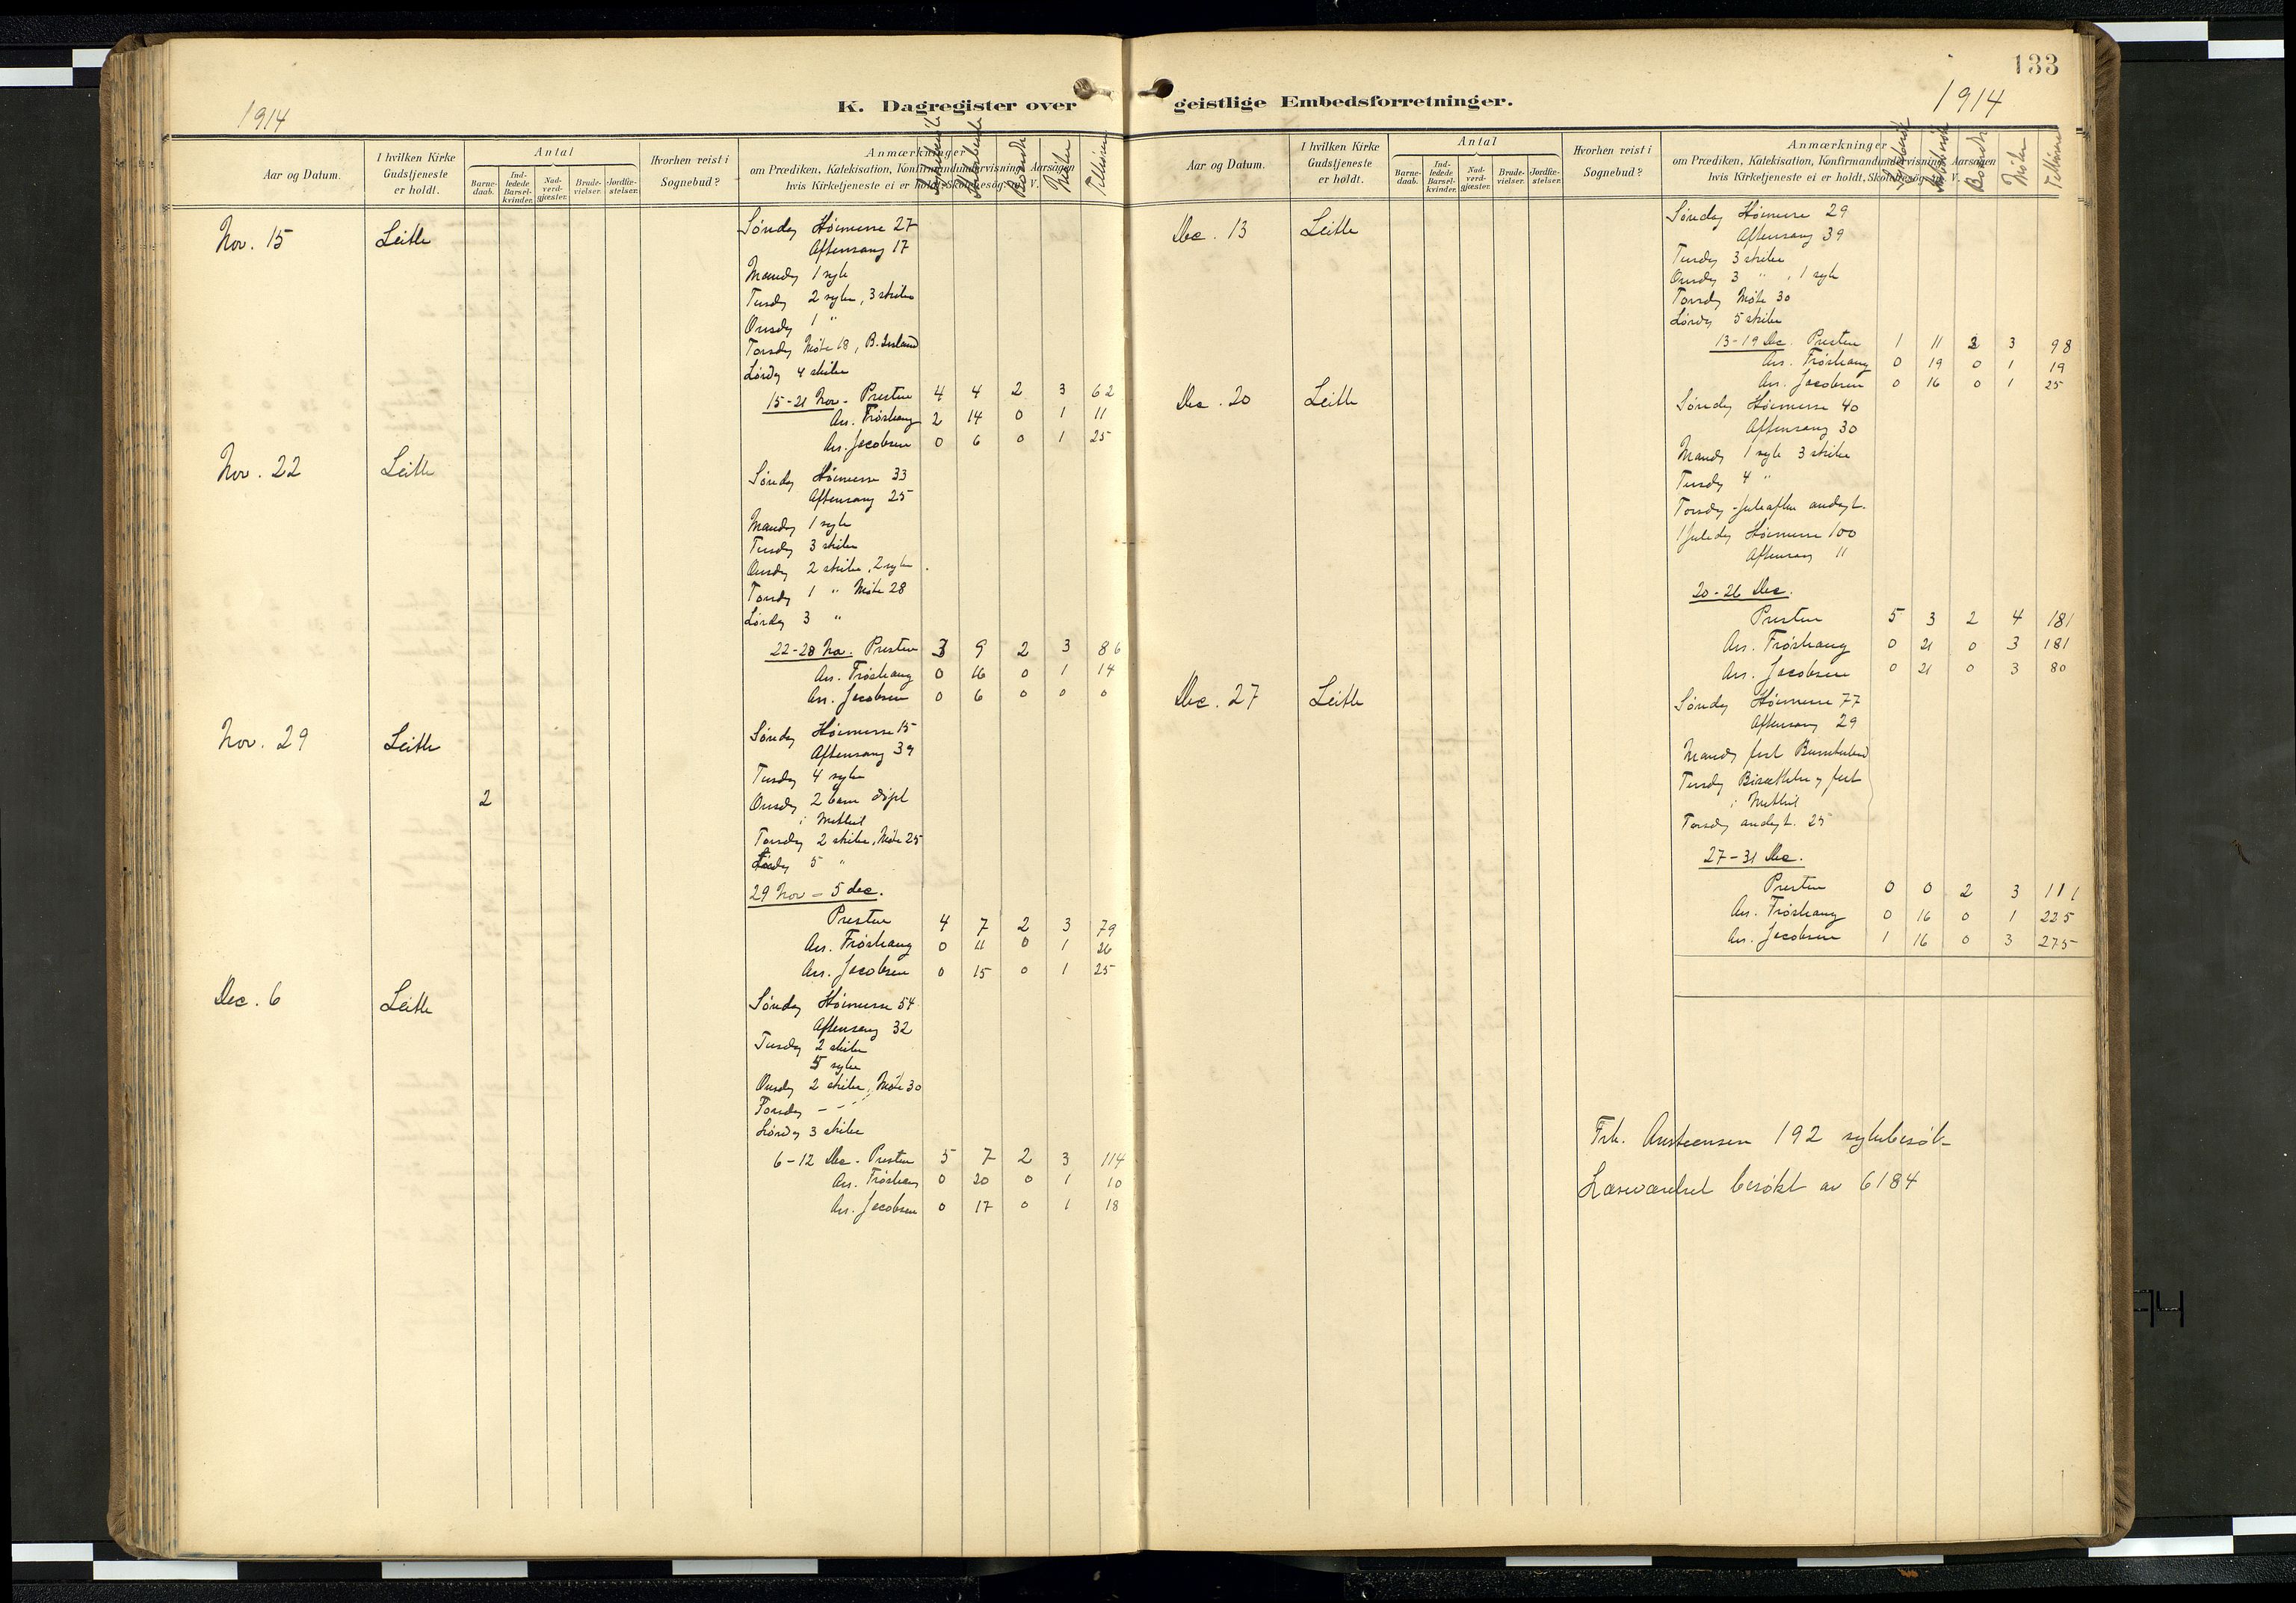 133
K. Dagregister over geistlige Embedsforretninger.
1914
Aar og Datum.
I hvilken Kirke Gudstjeneste er holdt.
Antal
Barne-daab.
Ind-ledede Barsel-kvinder.
Nad-verd-gjæster.
Brude-vielser.
Jordfæ-stelser.
Hvorhen reist i Sognebud?
Anmærkninger
om Prædiken, Katekisation, Konfirmandundervisning, Aarsagen
hvis Kirketjeneste ei er holdt, Skolebesøg o. s. V.
Sykebesök Skibsbesök Bönder Möter
Nov. 15 Leith Söndag Höimesse 27
Aftensang 17
Mandag 1 syk
Tirsdag 2 syke, 3 skibe
Onsdag 1 "
Torsdag Möte 18,
Lördag 4 skibe
15-21 Nov. Presten 4 4 2 3 62
Ass. Fröshaug 2 14 0 1 11
Ass. Jacobsen 0 6 0 1 25
Nov. 22 Leith Söndag Höimesse 33
Aftensang 25
Mandag 1 syk
Tirsdag 3 skibe
Onsdag 2 skibe, 2 syke
Torsdag 1 " Möte 28
Lördag 3 "
22-28 Nov. Presten 3 9 2 3 86
Ass. Fröshaug 0 16 0 1 14
Ass. Jacobsen 0 6 0 0 0
Nov. 29 Leith Söndag Höimesse 15
Aftensang 39
Tirsdag 4 syke
2 Onsdag 2 barn döpt
i Methil
Torsdag 2 skibe, Möte 25
Lördag 5 "
29 Nov - 5 dec.
Presten 4 7 2 3 79
Ass. Fröshaug 0 11 0 1 26
Ass. Jacobsen 0 15 0 1 25
Dec. 6 Leith Söndag Höimesse 54
Aftensang 32
Tirsdag 2 skibe
5 syke
Onsdag 2 skibe, Möte 30
Torsdag - - -
Lördag 3 skibe
6-12 Dec. Presten 5 7 2 3 114
Ass. Fröshaug 0 20 0 1 10
Ass. Jacobsen 0 17 0 1 18
1914
Aar og Datum.
I hvilken Kirke Gudstjeneste er holdt.
Antal
Barne-daab.
Ind-ledede Barsel-kvinder.
Nad-verd-gjæster.
Brude-vielser.
Jordfæ-stelser.
Hvorhen reist i Sognebud?
Anmærkninger
om Prædiken, Katekisation, Konfirmandundervisning, Aarsagen
hvis Kirketjeneste ei er holdt, Skolebesøg o. s. V.
Sykebesök Skibsbesök Bönder Möter
Dec. 13 Leith Söndag Höimesse 29
Aftensang 39
Tirsdag 3 skibe
Onsdag 3 " , 1 syk
Torsdag Möte 30
Lördag 5 skibe
13-19 Dec. Presten 1 11 2 3 98
Ass. Fröshaug 0 19 0 1 19
Ass. Jacobsen 0 16 0 1 25
Dec. 20 Leith Söndag Höimesse 40
Aftensang 30
Mandag 1 syk 3 skibe
Tirsdag 4 "
Torsdag - Juleaften andagt.
1 Juledag Höimesse 100
Aftensang 11
20-26 Dec.
Presten 5 3 2 4 181
Ass. Fröshaug 0 21 0 3 181
Ass. Jacobsen 0 21 0 3 80
Dec. 27 Leith Söndag Höimesse 77
Aftensang 29
Mandag fest
Tirsdag og fest
i Methil
Torsdag andagt. 25
27-31 Dec.
Presten 0 0 2 3 111
Ass. Fröshaug 0 16 0 1 225
Ass. Jacobsen 1 16 0 3 275
Frk. 192 sykebesök
Læseværelset besökt av 6184